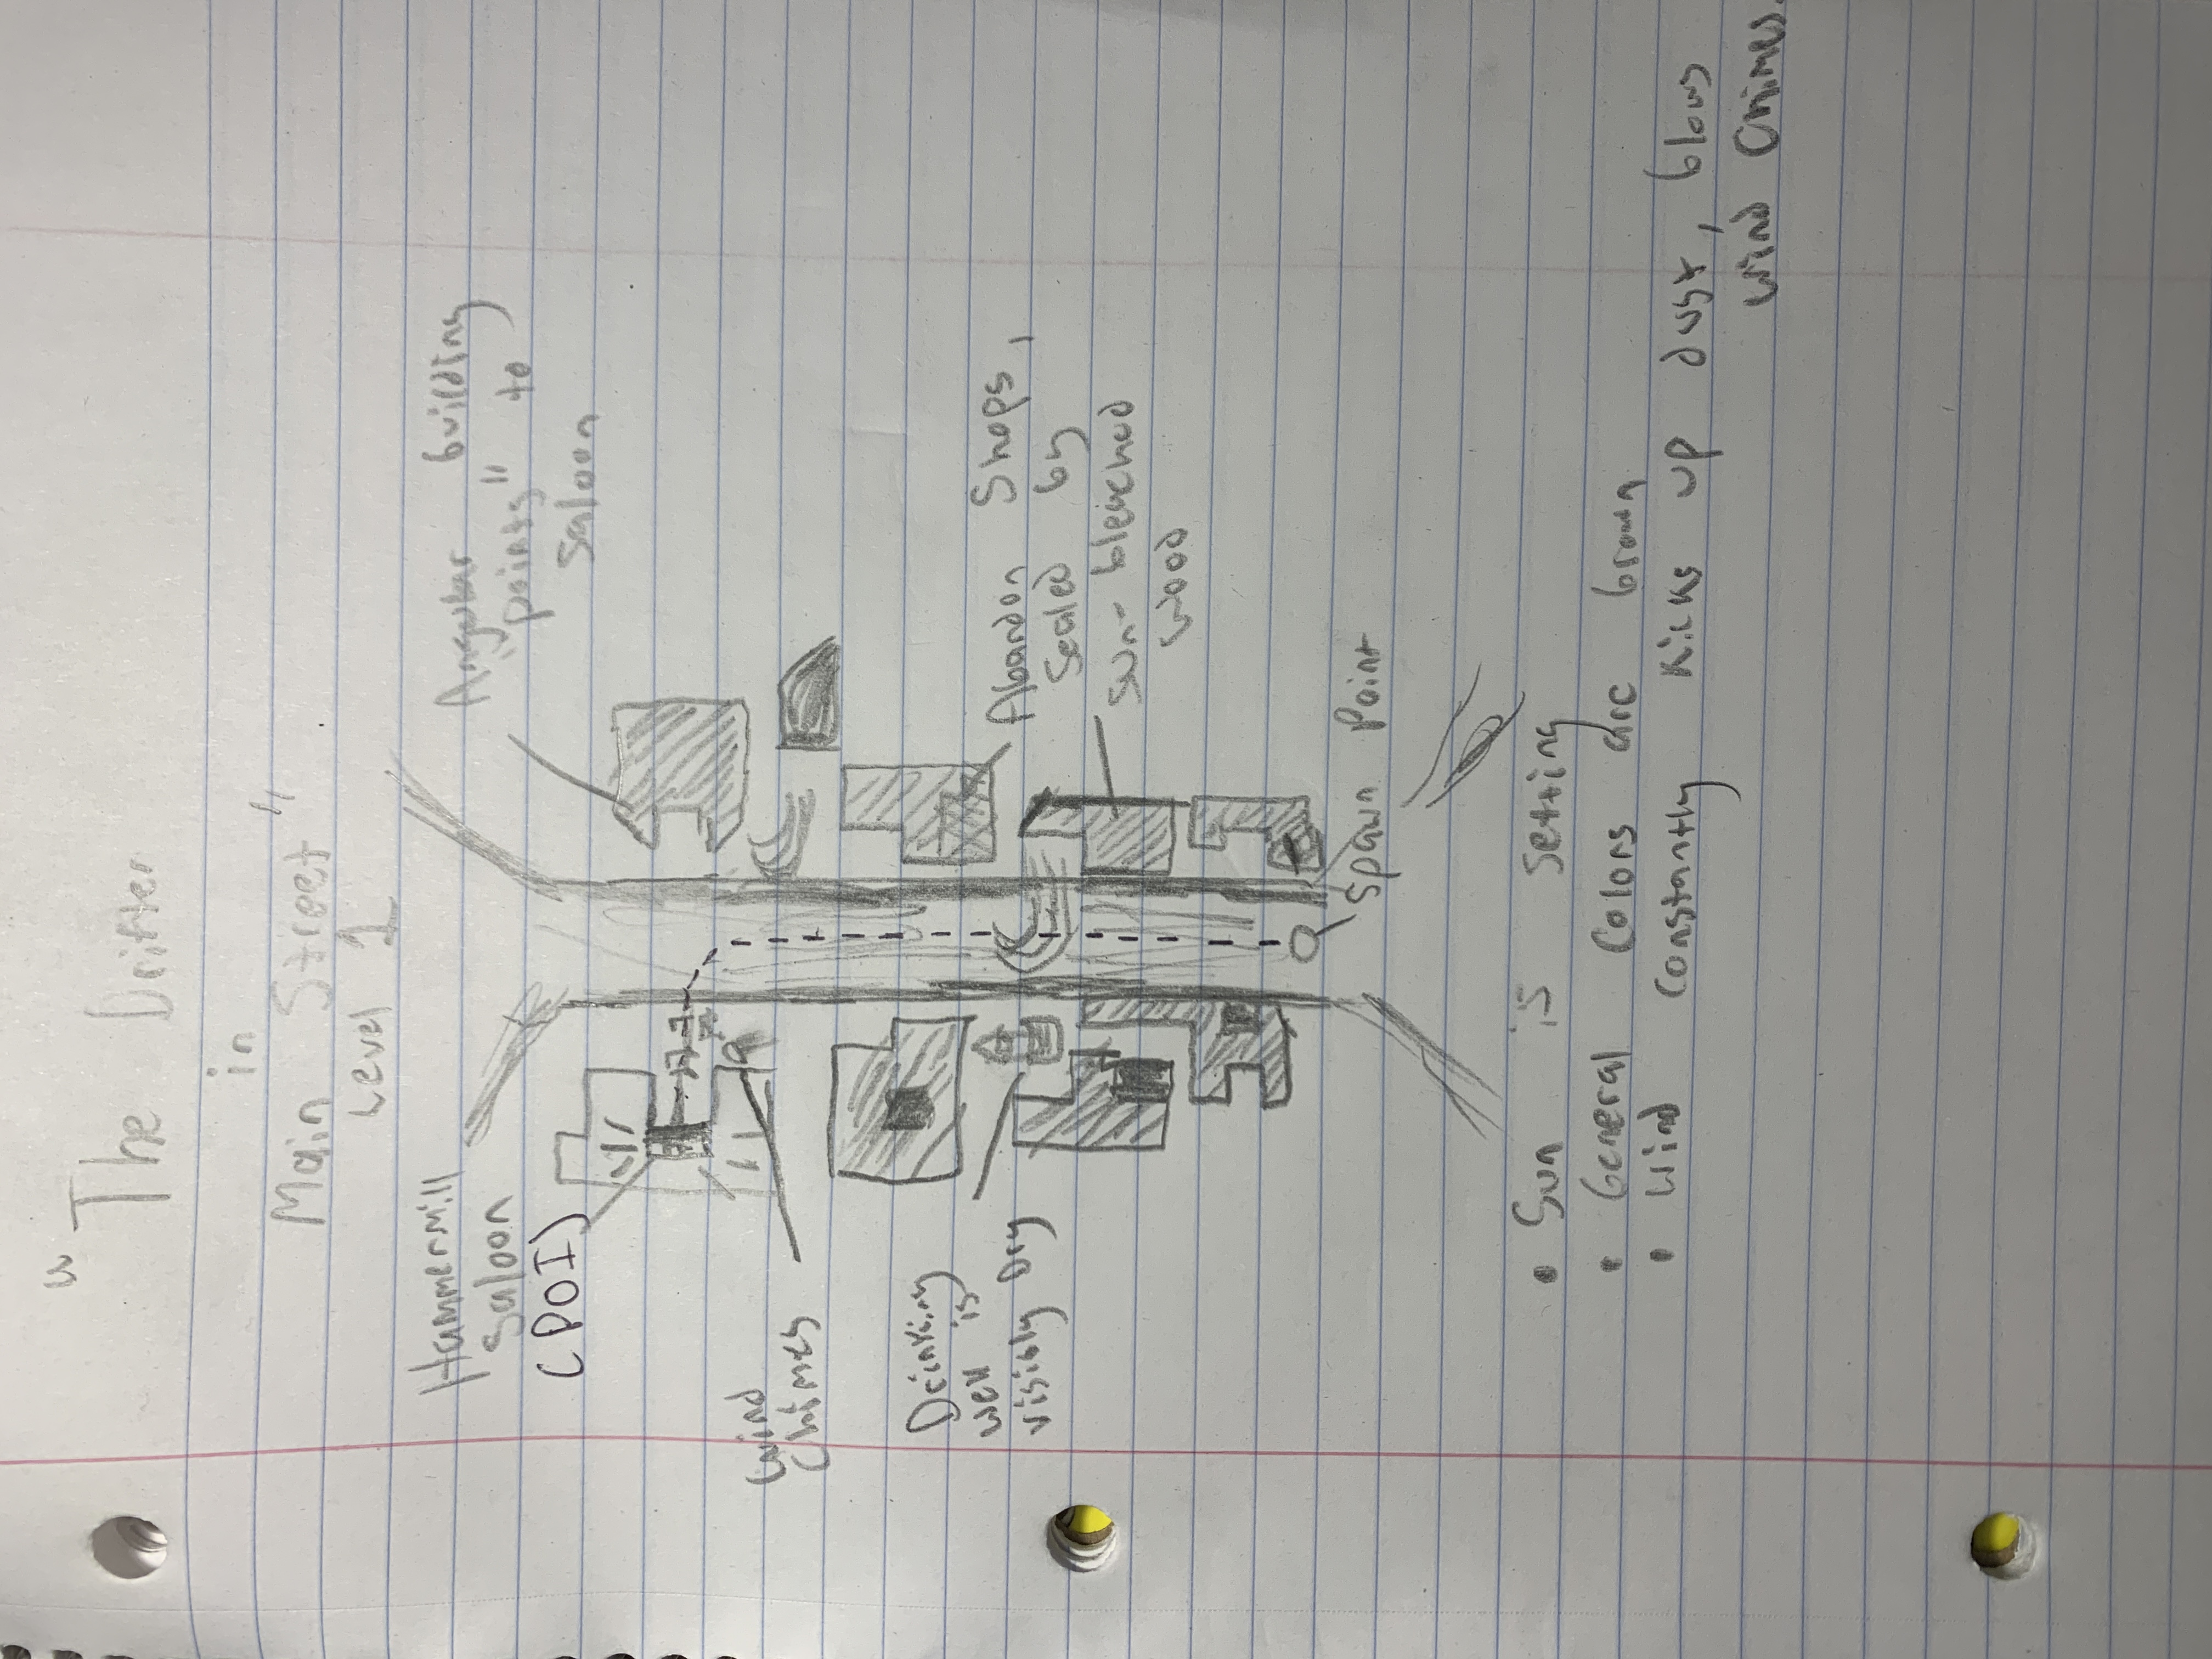 "The Drifter
in
Main Street"
Level 1
Hammermill
Saloon
(POI)
Angular building
"points" to
Saloon
Wind
Chimes
Drinking
well is
visibly Dry
Abandon Shops,
Sealed by
Sun-bleached
Wood
Spawn Point
• Sun is setting
• General Colors are brown
• Wind constantly kicks up dust, blows
wind Chimes.